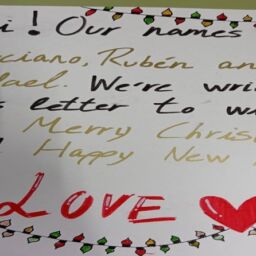 ! Our names
Rubén an
We're wri
letter to w
Merry Chris
Happy New
LOVE